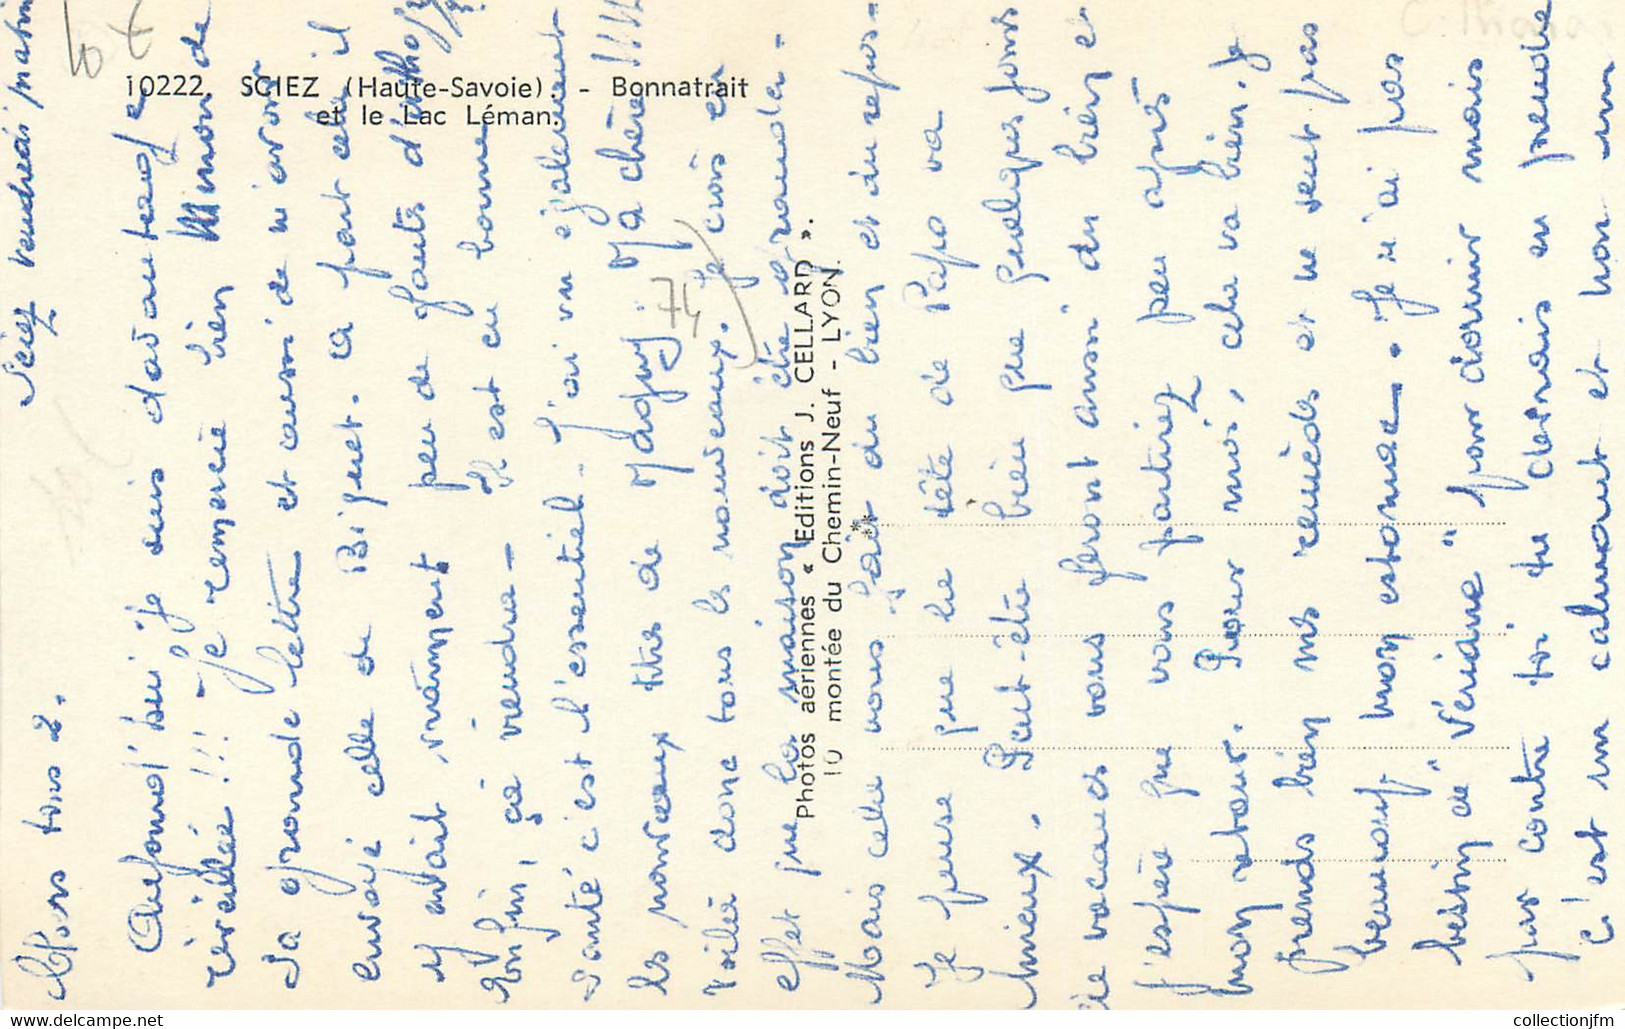 10222. SCIEZ (Haute-Savoie). - Bonnatrait
et le Lac Léman.
Photos aériennes « Editions J. CELLARD ».
10 montée du Chemin-Neuf - LYON.
74
Sciez vendredi matin
Chers tous 2.
Aujourd'hui je suis davantage
réveillée !!! Je remercie bien Mimon de
sa grande lettre et aussi de m'avoir
envoyé celle de Biquet. A part cela il
y avait vraiment peu de fautes d'orthog
Enfin, ça viendra - Il est en bonne
santé c'est l'essentiel - J'ai vu également
les nouveaux de Maguy. Ma chère !!!!
Voilà donc tous les nouveaux. Je crois en
effet que la maison doit être grande -
Mais cela vous fait du bien et du repos -
Je pense que la tête de Papo va
mieux. Peut-être bien que quelques jours
de vacances vous feront aussi du bien et
j'espère que vous partirez peu après
mon retour. Pour moi, cela va bien. Je
prends bien mes remèdes et ne sent pas
beaucoup mon estomac. Je n'ai pas
besoin de "Vériane" pour dormir mais
par contre toi tu devrais en prendre
c'est un calmant et non un
collectionjfm